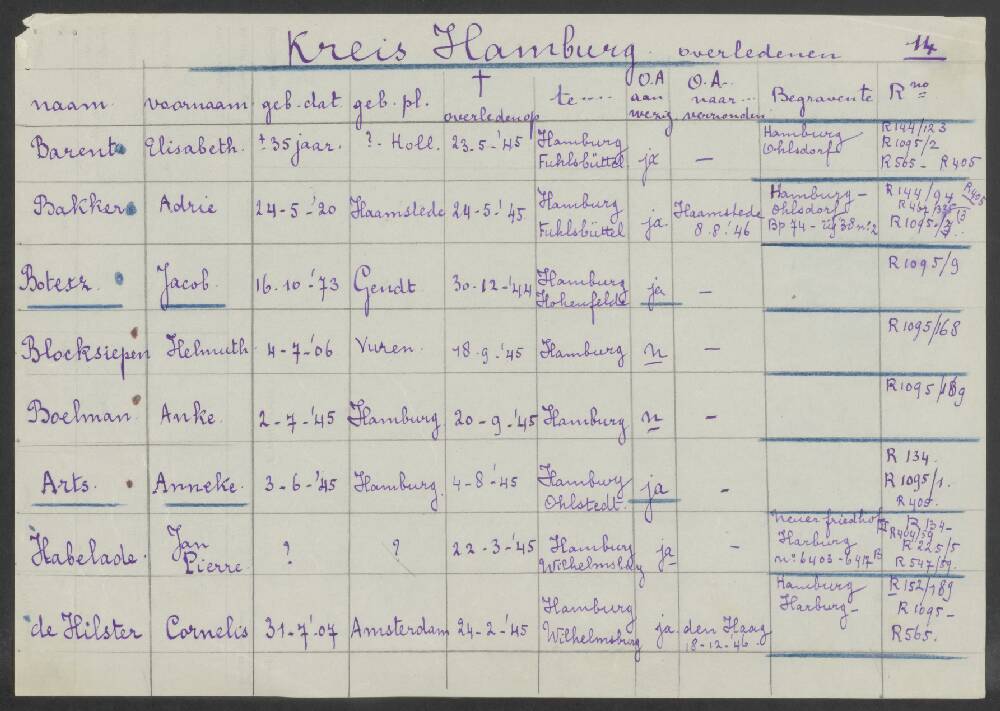 Kreis Hamburg. overledenen 14
naam. voornaam geb. dat. geb. pl. † overleden op te.... O.A aan wezig O.A.. naar... verzonden Begraven te R no
Barents Elisabeth. ± 35 jaar. ? - Holl. 23.5-'45 Hamburg Fuhlsbüttel ja — Hamburg Ohlsdorf R144/123 R1095/2 R565 - R405
Bakker Adrie 24-5-'20 Haamstede 24-5-'45 Hamburg Fuhlsbüttel ja. Haamstede 8.8.'46 Hamburg - Ohlsdorf Bp 74 - 38 no 2 R144/94 R405 R1095/3
Botesz Jacob. 16.10-'73 Gendt 30-12-'44 Hamburg Hohenfelde ja — R1095/9
Blocksiepen Helmuth 4-7-'06 Vuren. 18.9-'45 Hamburg n — R1095/168
Boelman. Anke. 2-7-'45 Hamburg 20-9-'45 Hamburg n - R1095/189
Arts. Anneke. 3-6-'45 Hamburg. 4-8-'45 Hamburg Ohlstedt. ja - R 134. R1095/1. R405.
Habelade. Jan Pierre ? ? 22-3-'45 Hamburg Wilhelmsburg ja - neuer friedhof Harburg no 6403-6417 B R134- R404/59 R225/5 R547/59.
de Hilster Cornelis 31-7-'07 Amsterdam 24-2-'45 Hamburg Wilhelmsburg ja. den Haag 18-12-'46. Hamburg Harburg - R152/189 R1095- R565.